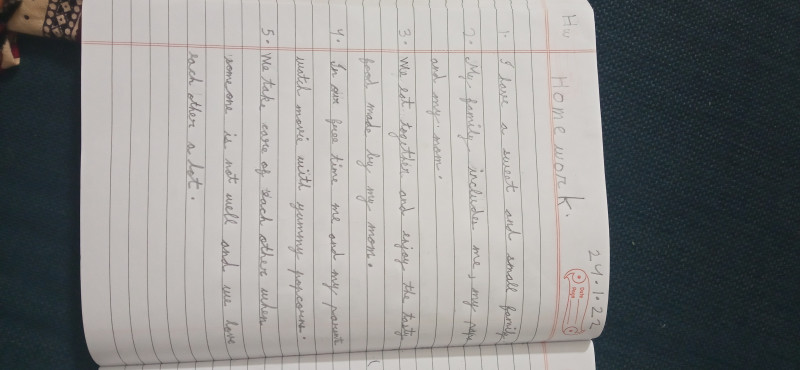 24.1.22
Date
Page
Hw Homework.
1. I have a sweet and small family
2. My family includes me, my papa
and my mom.
3. We eat together and enjoy the tasty
food made by my mom.
4. In our free time me and my parents
watch movie with yummy popcorns.
5. We take care of each other when
someone is not well and we love
each other a lot.